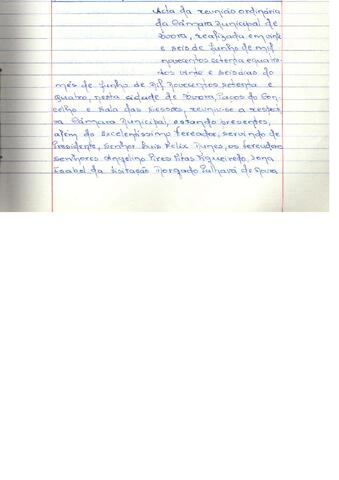 Acta da reunião ordinária
da Câmara Municipal de
Évora, realizada em vinte
e seis de Junho de mil
novecentos setenta e quatro
Aos vinte e seis dias do
mês de Junho de Mil Novecentos setenta e
quatro, nesta cidade de Évora, Paços do Con-
celho e Sala das Sessões, reuniu-se a respecti-
va Câmara Municipal, estando presentes,
além do Excelentíssimo Vereador, servindo de
Presidente, Senhor Luís Félix Nunes, os vereadores
senhores Angelino Pires Pitas Figueiredo, Dona
Isabel da Visitação Morgado Palhavã de Moura